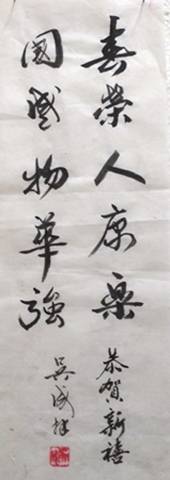 春榮人康樂
恭賀新禧
國盛物華強
吳